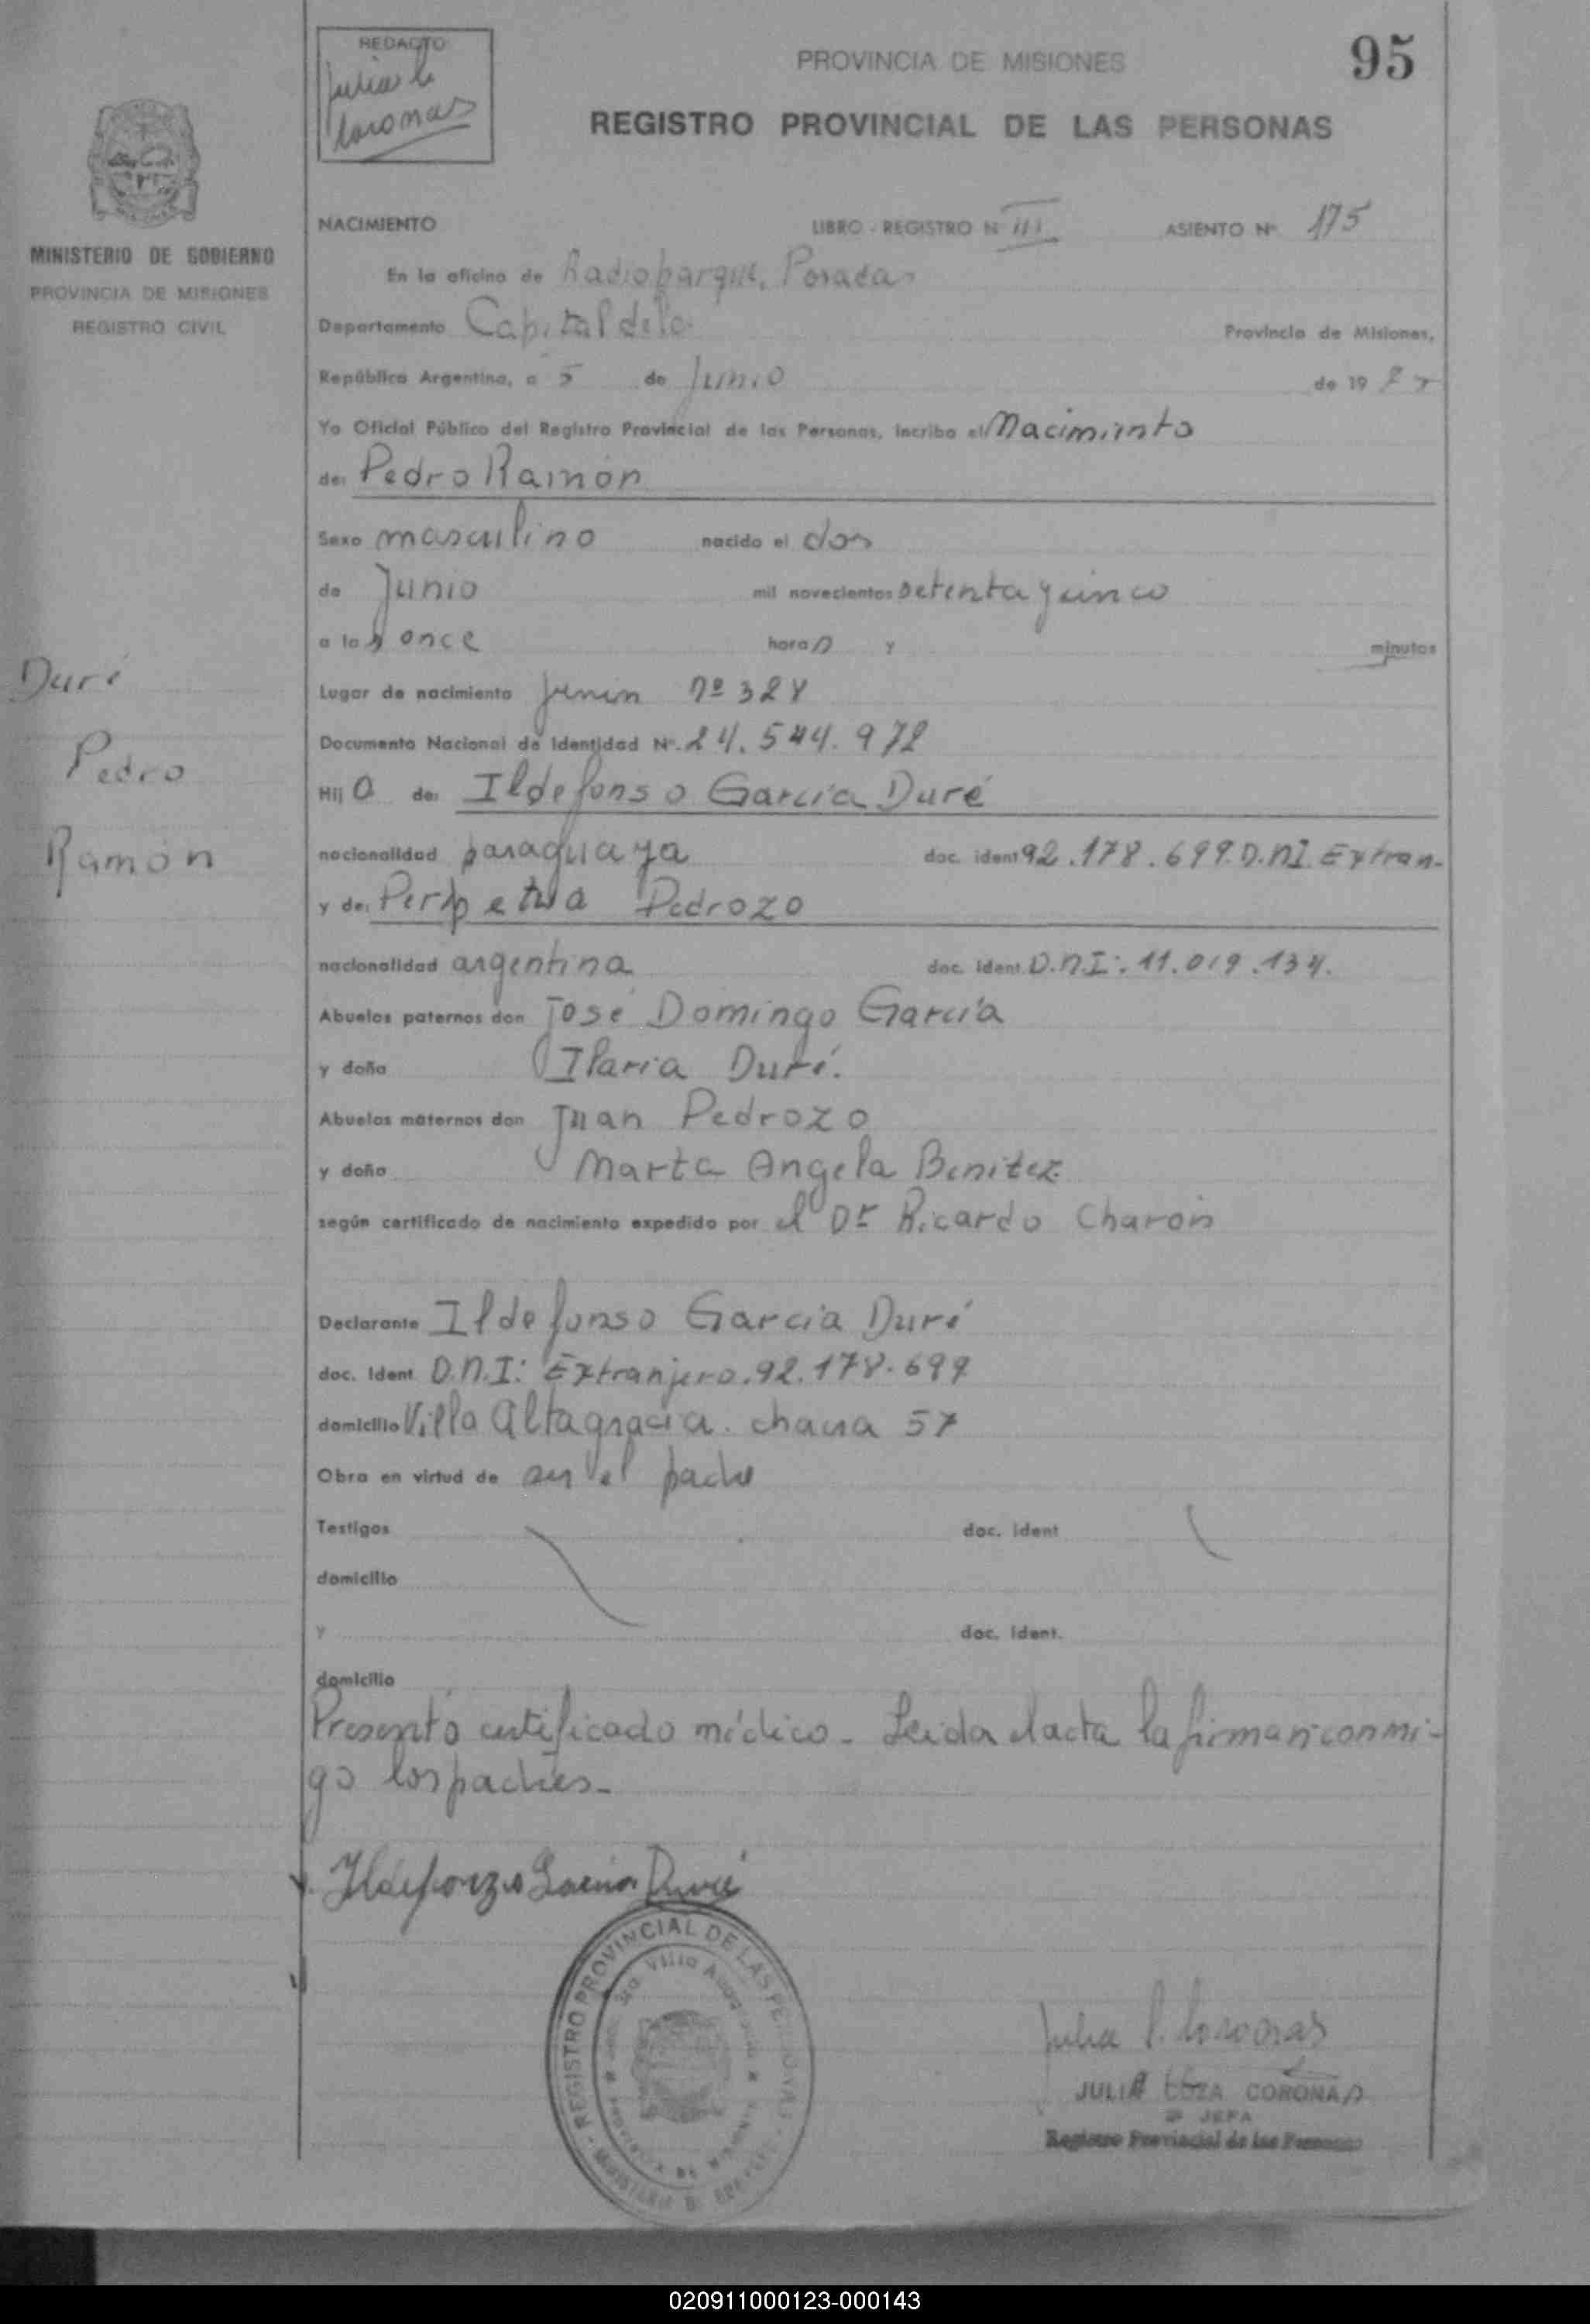 REDACTO
Julia L
Coronas
PROVINCIA DE MISIONES
95
REGISTRO PROVINCIAL DE LAS PERSONAS
MINISTERIO DE GOBIERNO
PROVINCIA DE MISIONES
REGISTRO CIVIL
NACIMIENTO LIBRO - REGISTRO Nº III ASIENTO Nº 175
En la oficina de Radioparque, Posadas
Departamento Capital de la Provincia de Misiones,
República Argentina, a 5 de Junio de 19
Yo Oficial Público del Registro Provincial de las Personas, incribo el Nacimiento
de: Pedro Ramón
Sexo masculino nacido el dos
de Junio mil novecientos setenta y cinco
a las once horas y minutos
Lugar de nacimiento Junin nº 328
Documento Nacional de Identidad Nº. 24.544.972
Hijo de: Ildefonso Garcia Duré
nacionalidad paraguaya doc. ident 92.178.699. D.N.I. Extran-
y de: Perpetua Pedrozo
nacionalidad argentina doc. ident. D.N.I: 11.019.134.
Abuelos paternos don José Domingo García
y doña Ilaria Duré.
Abuelos maternos don Juan Pedrozo
y doña Marta Angela Benitez
según certificado de nacimiento expedido por el Dr Ricardo Charón
Declarante Ildefonso Garcia Duré
doc. Ident. D.N.I: Extranjero. 92.178.699
domicilio Villa Altagracia. chacra 57
Obra en virtud de ser el padre
Testigos doc. ident
domicilio
y doc. Ident.
domicilio
Presentó certificado médico - Leida el acta la firman conmi-
go los padres-
Duré
Pedro
Ramón
Ildefonzo Garcia Duré
REGISTRO PROVINCIAL DE LAS PERSONAS
Julia L. Coronas
JULIA LOZA CORONAS
JEFA
Registro Provincial de las Personas
020911000123-000143